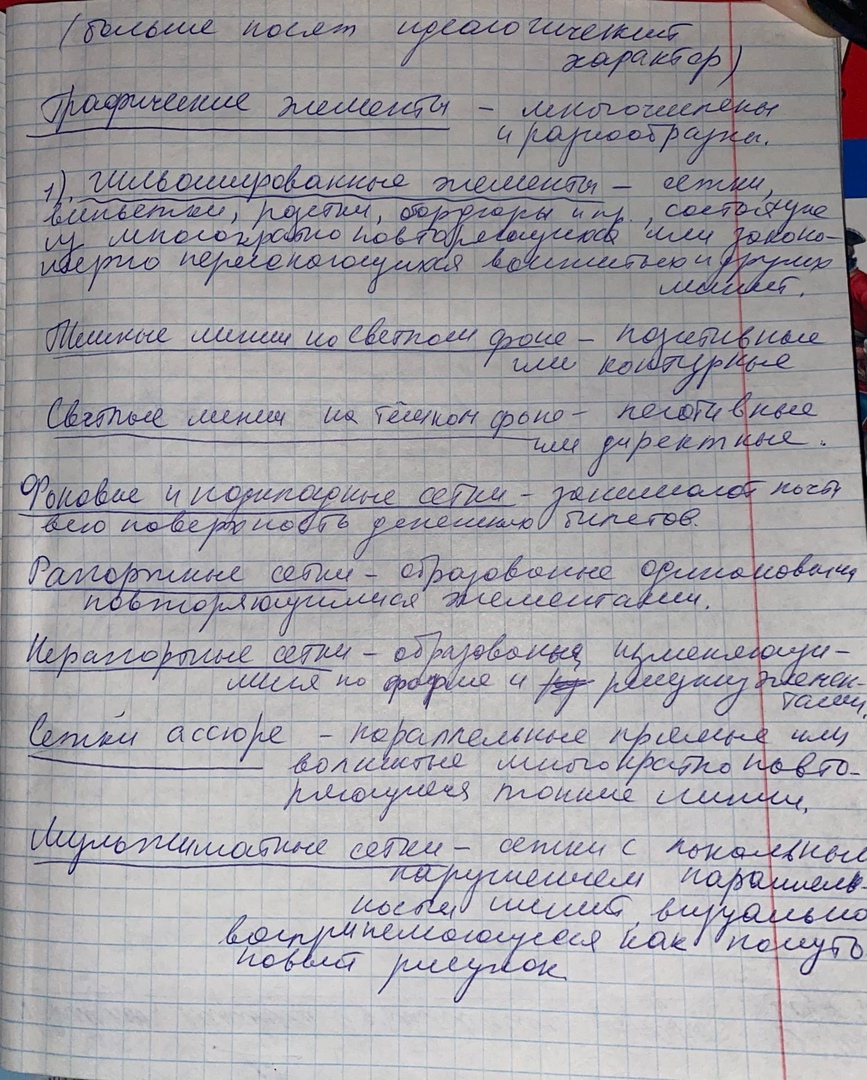 (больше носят идеологический
характер)
Графические элементы – многочислены
и разнообразны.
1). Гильошированные элементы – сетки,
виньетки, розетки, бордюры и пр., состоящие
из многократно повторяющихся или законо-
мерно пересекающихся волнистых и других
линий.
Тёмные линии на светлом фоне – позитивные
или контурные
Светлые линии на тёмном фоне – негативные
или директные.
Фоновые и подкладные сетки – занимают почти
всю поверхность денежных билетов.
Раппортные сетки – образованные одинаковыми
повторяющимися элементами.
Нераппортные сетки – образованы изменяющи-
мися по форме и рисунку элемен-
тами.
Сетки ассюре – параллельные прямые или
волнистые многократно повто-
ряющиеся тонкие линии.
Мультиматные сетки – сетки с локальным
нарушением параллель
ности линий, визуально
воспринимающиеся как полуто
новый рисунок